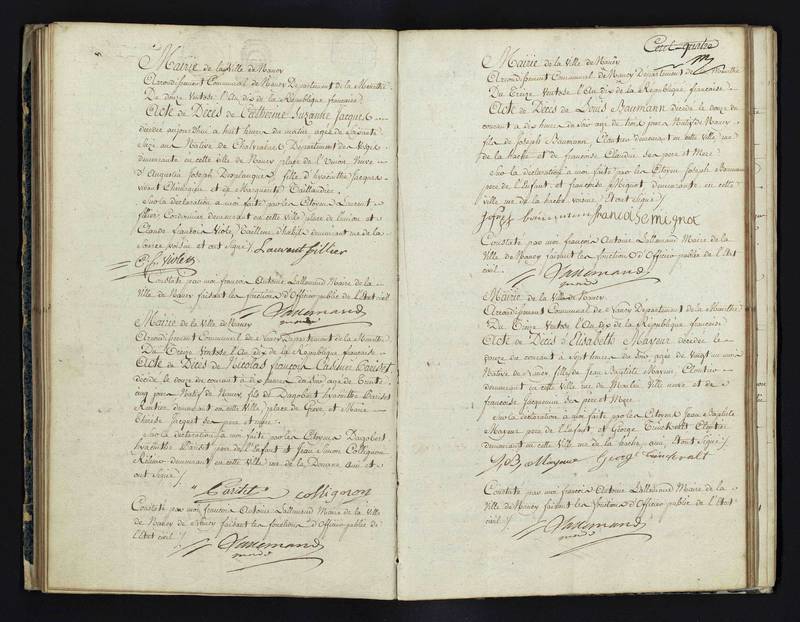 Mairie de la Ville de Nancy
Arrondissement Communal de Nancy Departement de la Meurthe
Du Douze Ventose l'An dix de la République française
Acte de Décès de Catherine Suzanne Jacques
décédée aujourd'hui à huit heures du matin agée de soixante
ans Native de Departement des Vosges
demeurante en cette ville de Nancy place de l'Union Veuve
d'Augustin Joseph Desplanques, fille d'hyacinthe Jacques
vivant Chirurgien et de Marguerite Taillandier
Sur la déclaration à moi faite par les Citoyens Laurent
fillier, Cordonnier demeurant en cette ville place de l'union et
Claude françois Violet, Tailleur d'habits demeurant rue de la
Source voisins et ont signé /. Laurent fillier
C. fr. Violet
Constaté par moi françois Antoine Lallemand Maire de la
Ville de Nancy faisant les fonctions d'Officier public de l'Etat civil
Lallemand
maire
Mairie de la Ville de Nancy
Arrondissement Communal de Nancy Departement de la Meurthe
Du Treize Ventose l'An dix de la République française
Acte de Décès de Nicolas françois Casimir Paridet
décédé le douze du courant à dix heures du Soir agé de Trente
cinq jours Natif de Nancy fils de Dagobert hyacinthe Paridet
Rentier demeurant en cette Ville place de Grève et Marie
thérèse Jacquet ses pere et mere
Sur la déclaration à moi faite par les Citoyens Dagobert
hyacinthe Paridet pere de l'Enfant et Jean Simon Collignon
demeurant en cette Ville rue de la Douane ami et
ont Signé /.
Paridet collignon
Constaté par moi françois Antoine Lallemand Maire de la Ville
de Nancy faisant les fonctions d'Officier public de
l'Etat civil /.
Lallemand
maire
Cent quatre
Mairie de la Ville de Nancy
Arrondissement Communal de Nancy Département de la Meurthe
Du Treize Ventose l'An dix de la République française
Acte de Décès de Louis Baumann décédé le douze du
courant à dix heures du Soir agé de trois jours Natif de Nancy
fils de Joseph Baumann, Cloutier demeurant en cette Ville rue
de la hache et de françoise Claudin ses pere et Mere
Sur la déclaration à moi faite par les Citoyens Joseph Baumann
pere de l'Enfant et françoise Mignot, demeurante en cette
Ville rue de la hache voisine, Et ont signé /.
francoise mignot
Constaté par moi françois Antoine Lallemand Maire de la
Ville de Nancy faisant les fonctions d'Officier public de l'Etat
civil /.
Lallemand
maire
Mairie de la Ville de Nancy
Arrondissement Communal de Nancy Departement de la Meurthe
Du Treize Ventose l'An dix de la République française
Acte de Décès d'Elisabeth Mayeur décédée le
douze du courant à Sept heures du Soir agée de Vingt un mois
Native de Nancy, fille de Jean Baptiste Mayeur, Cloutier
demeurant en cette Ville rue du Moulin Ville neuve et de
françoise Jacquemin ses pere et Mere
Sur la déclaration à moi faite par les Citoyens Jean Baptiste
Mayeur pere de l'Enfant et George Cloutier
demeurant en cette Ville rue de la hache, ami, Et ont Signé /.
J B Mayeur George
Constaté par moi françois Antoine Lallemand Maire de la
Ville de Nancy faisant les fonctions d'Officier public de l'Etat
civil /.
Lallemand
maire